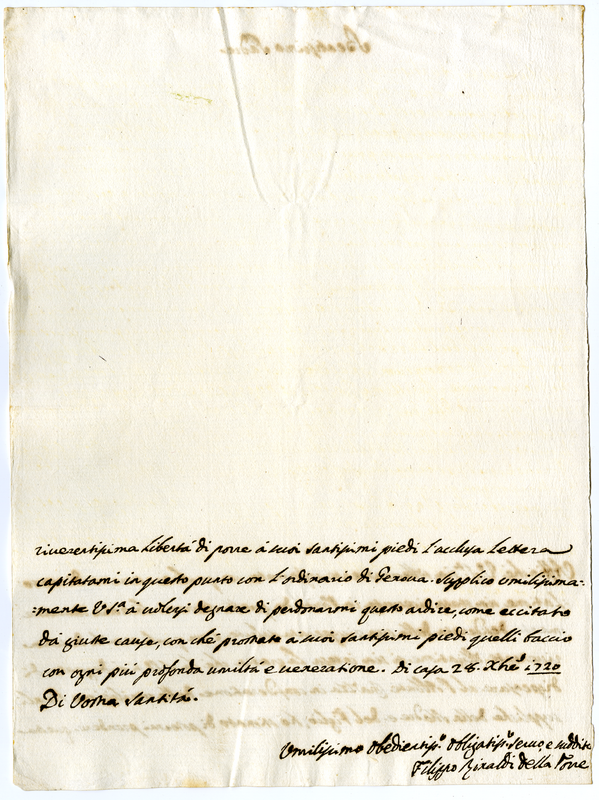 riverentissima libertà di porre à suoi santissimi piedi l'acclusa lettera
capitatami in questo punto con l'ordinario di Genova. Supplico umilissima-
:mente V. S.ᵃ à volersi degnare di perdonarmi questo ardire, come eccitato
da giuste cause, con ché prostrato à suoi santissimi piedi quelli baccio
con ogni più profonda umiltà e veneratione. Di casa 28. Xbrē 1720
Di Vostra Santità.
Umilissimo Obedientiss.º Obligatiss.º servo, e suddito
Filippo Rinaldi della Torre